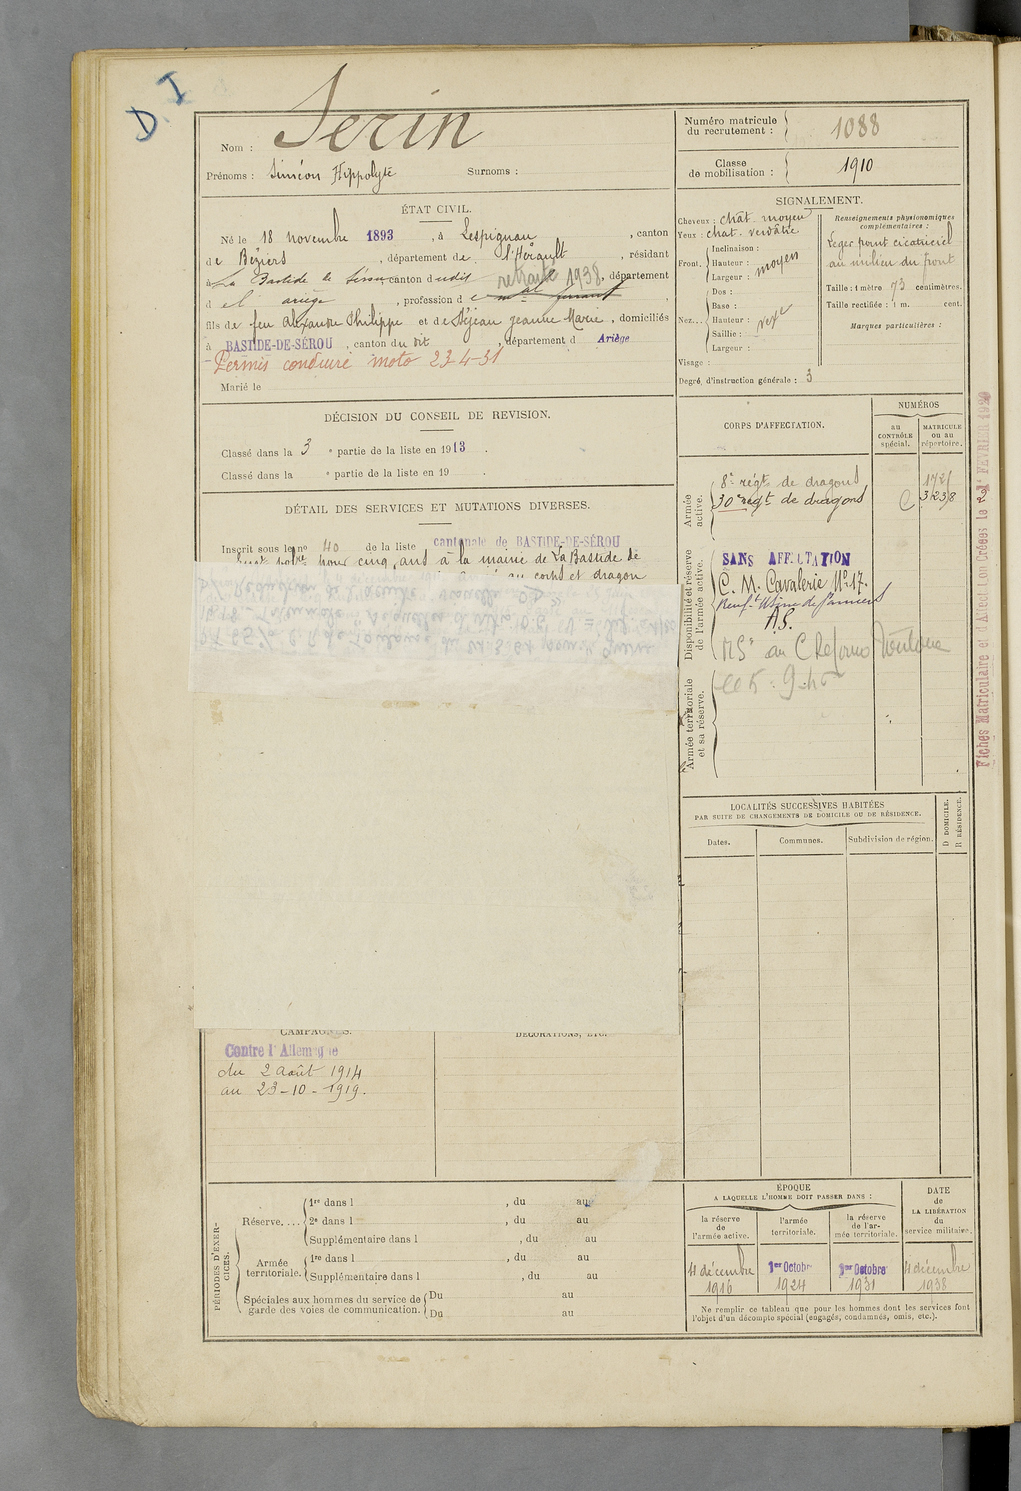 D.I
Nom : Serin
Prénoms : Siméon Hippolyte Surnoms :
Numéro matricule
du recrutement : 1088
Classe
de mobilisation : 1910
ÉTAT CIVIL.
Né le 18 novembre 1893, à Lespignan, canton
de Béziers, département de l'Hérault, résidant
à La Bastide de Sérou canton dudit retraité 1938, département
d el ariège, profession d e mal ferrant
fils de feu Alexandre Philippe et de Déjean Jeanne Marie, domiciliés
à BASTIDE-DE-SÉROU, canton du dit, département d Ariège
- Permis conduire moto 23-4-31
Marié le
SIGNALEMENT.
Cheveux : chât. moyen
Yeux : chat. verdâtre
Front. Inclinaison :
Hauteur :
Largeur : moyen
Nez... Dos :
Base :
Hauteur :
Saillie :
Largeur :
vexe
Visage :
Renseignements physionomiques
complémentaires :
Léger point cicatriciel
au milieu du front
Taille : 1 mètre 73 centimètres.
Taille rectifiée : 1 m. cent.
Marques particulières :
Degré d'instruction générale : 3
DÉCISION DU CONSEIL DE REVISION.
Classé dans la 3 e partie de la liste en 1913.
Classé dans la e partie de la liste en 19 .
DÉTAIL DES SERVICES ET MUTATIONS DIVERSES.
Inscrit sous le no 40 de la liste cantonale de BASTIDE-DE-SÉROU
pour cinq ans à la mairie de La Bastide de
au corps et dragon
CORPS D'AFFECTATION.
NUMÉROS
au
CONTRÔLE
spécial.
MATRICULE
ou au
répertoire.
Armée
active.
8e régt de dragons
30e régt de dragons C 3238
Disponibilité et réserve
de l'armée active.
SANS AFFECTATION
C. M. Cavalerie No 17.
A.S.
Armée territoriale
et sa réserve.
Fiches Matriculaire et d'Affection Créées le 2 FÉVRIER
LOCALITÉS SUCCESSIVES HABITÉES
PAR SUITE DE CHANGEMENTS DE DOMICILE OU DE RÉSIDENCE.
Dates.
Communes.
Subdivision de région.
D DOMICILE.
R RÉSIDENCE.
CAMPAGNES.
DÉCORATIONS, ETC.
Contre l'Allemagne
du 2 août 1914
au 23-10-1919.
PÉRIODES D'EXER-
CICES.
Réserve....
1re dans l , du au
2e dans l , du au
Supplémentaire dans l , du au
Armée
territoriale.
1re dans l , du au
Supplémentaire dans l , du au
Spéciales aux hommes du service de
garde des voies de communication.
Du au
Du au
ÉPOQUE
A LAQUELLE L'HOMME DOIT PASSER DANS :
la réserve
de
l'armée active.
l'armée
territoriale.
la réserve
de l'ar-
mée territoriale.
DATE
de
LA LIBÉRATION
du
service militaire.
4 décembre
1916
1er Octobre
1924
1er Octobre
1931
4 décembre
1938
Ne remplir ce tableau que pour les hommes dont les services font
l'objet d'un décompte spécial (engagés, condamnés, omis, etc.).